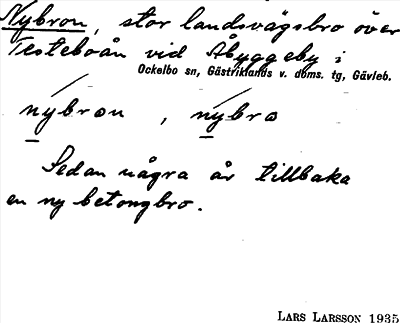 Nybron, stor landsvägsbro över
Testeboån vid Åbyggeby i
Ockelbo sn, Gästriklands v. doms. tg, Gävleb.
nybron , nybro
Sedan några år tillbaka
en ny betongbro.
LARS LARSSON 1935